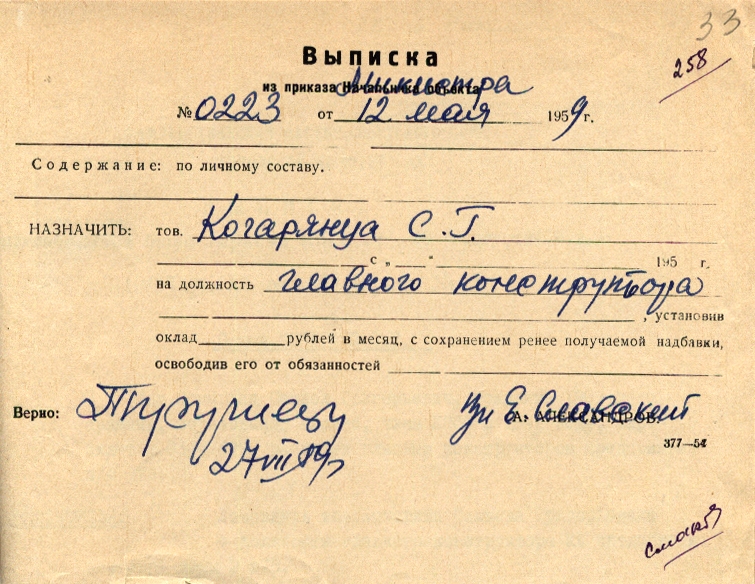 33
258
Выписка
из приказа Начальника объекта Министра
№ 0223 от 12 мая 1959 г.
Содержание: по личному составу.
НАЗНАЧИТЬ: тов. Кочарянца С.Г.
с „ “ 195 г.
на должность главного конструктора
, установив
оклад рублей в месяц, с сохранением ренее получаемой надбавки,
освободив его от обязанностей
Верно: А. АЛЕКСАНДРОВ. Е. Славский
27 VII 59г
377—54